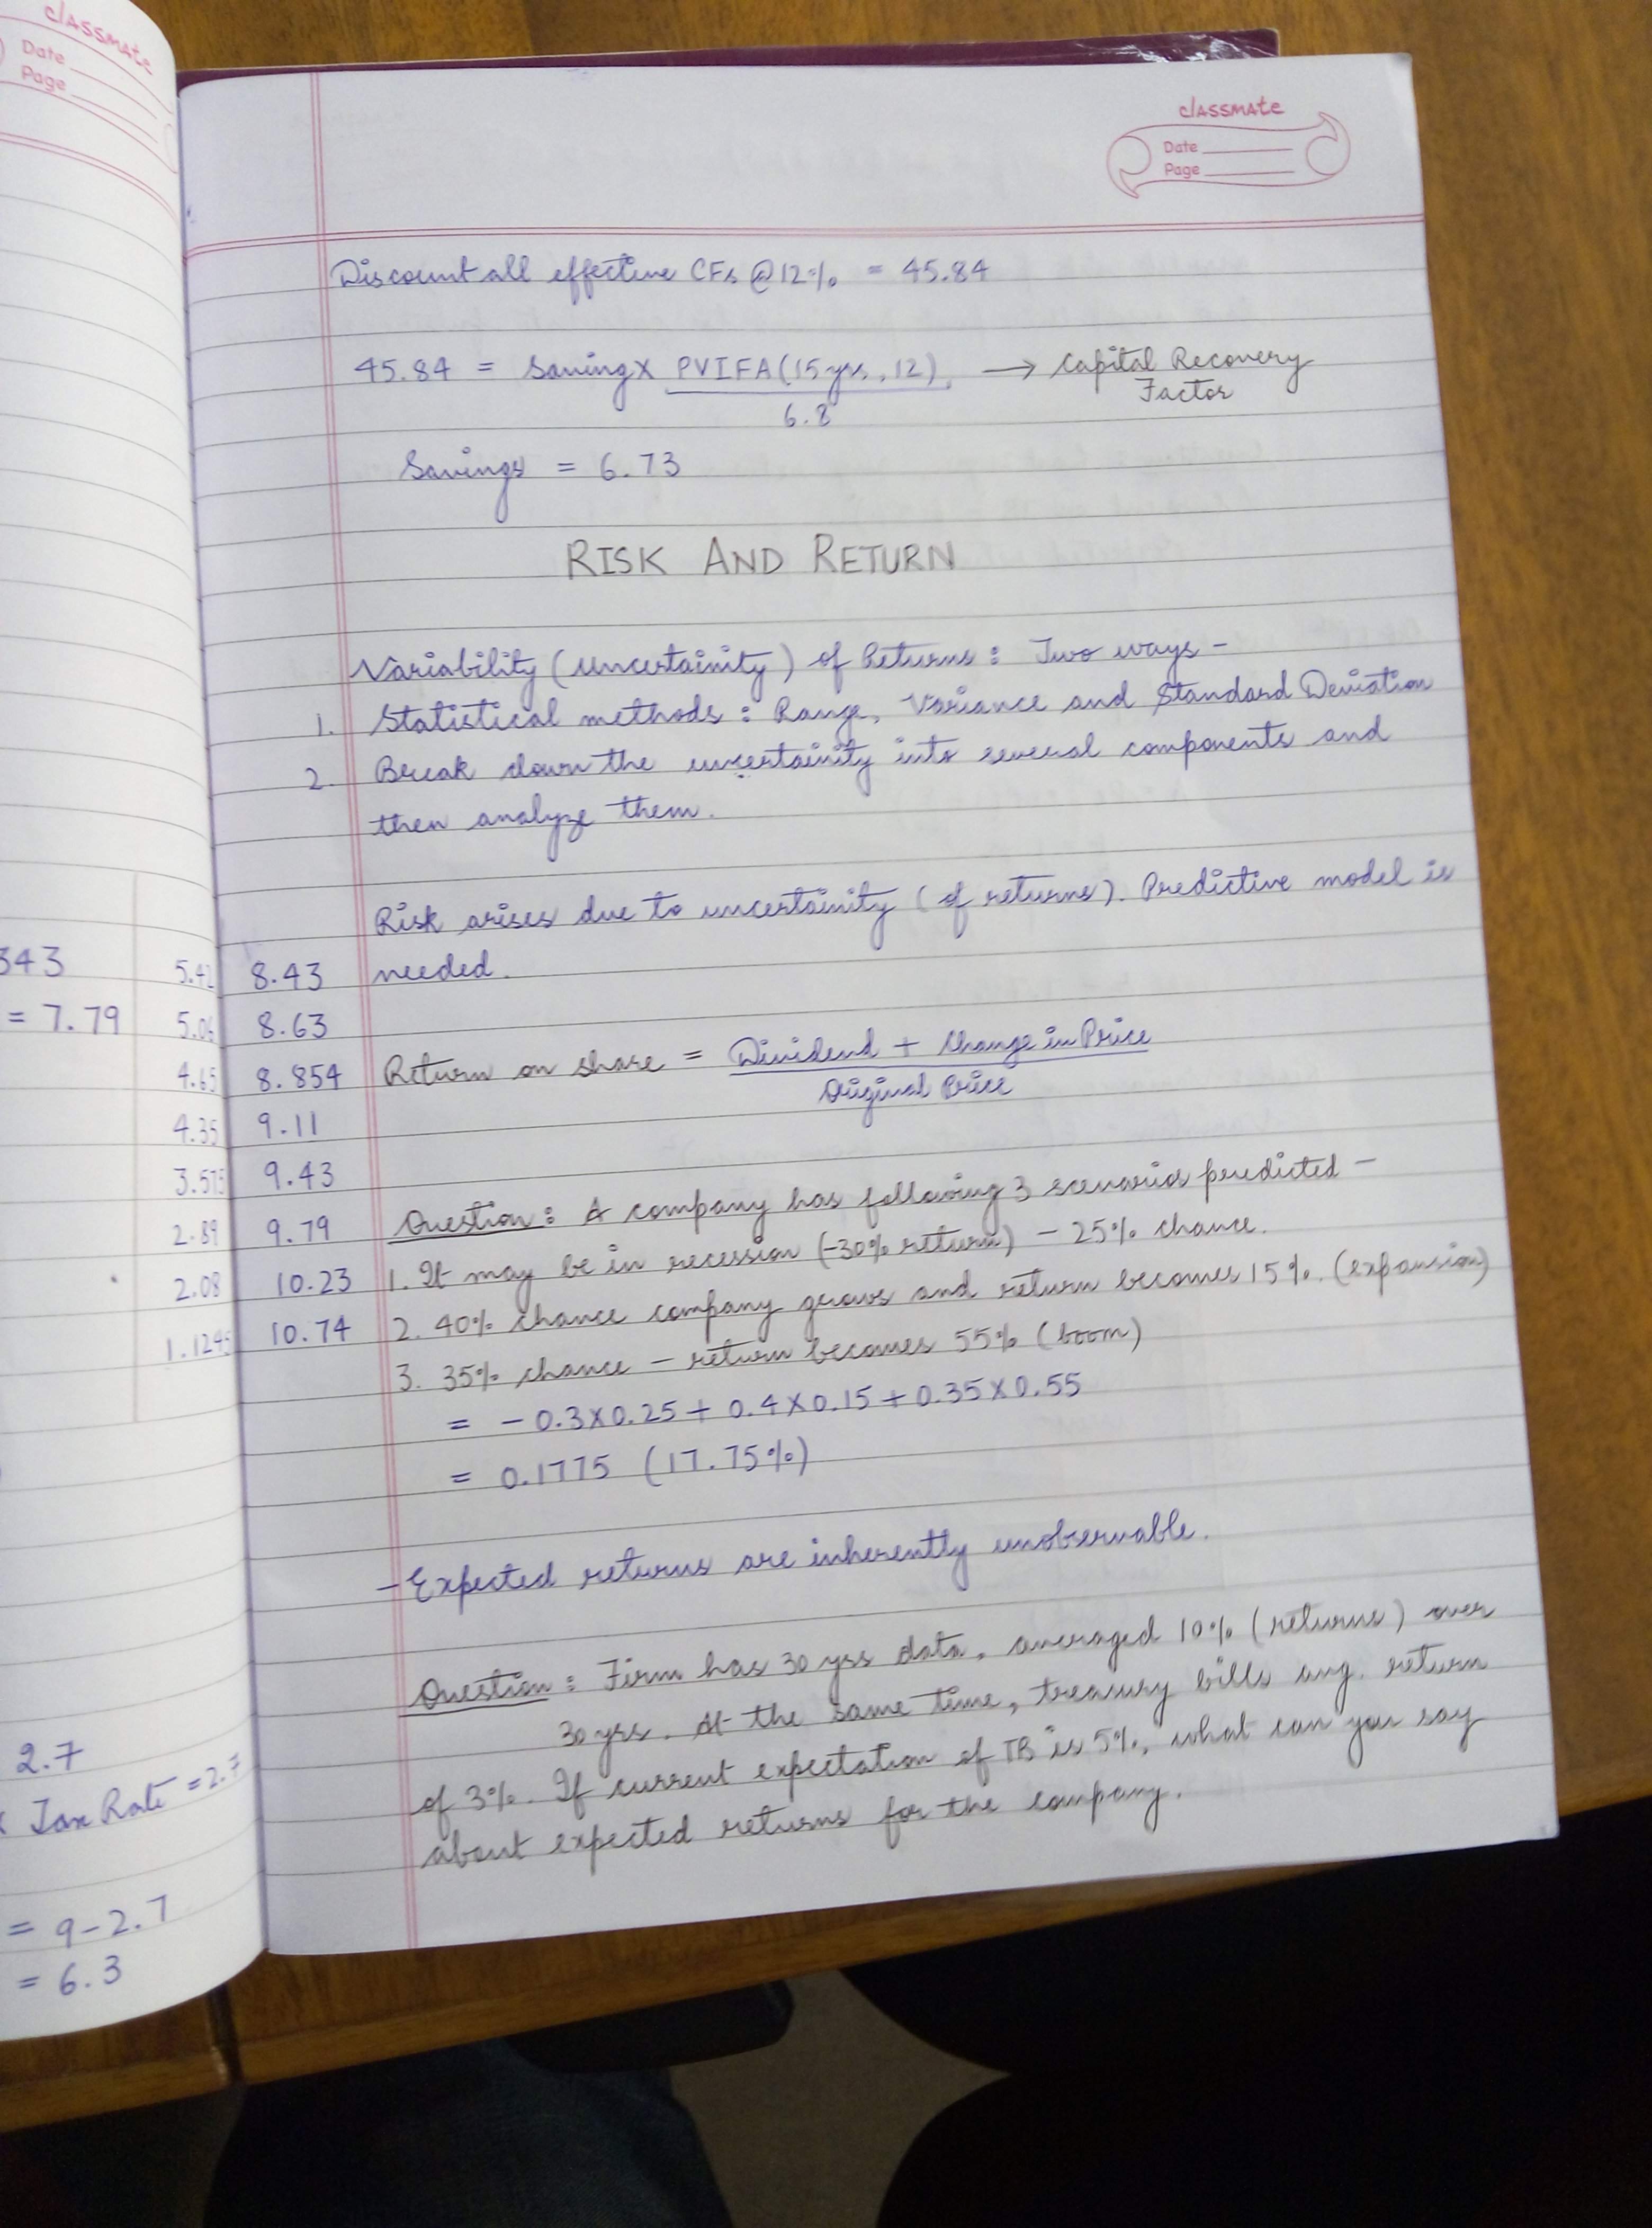 classmate
Date
Page
343
= 7.79
5.42
5.06
4.65
4.35
3.515
2.89
2.08
1.1245
2.7
Tax Rate = 2.7
= 9-2.7
= 6.3
classmate
Date
Page
Discount all effective CFs @ 12% = 45.84
45.84 = Saving X PVIFA (15 yrs, 12) → Capital Recovery
6.8 Factor
Savings = 6.73
RISK AND RETURN
Variability (uncertainity) of Returns : Two ways -
1. Statistical methods : Range, Variance and Standard Deviation
2. Break down the uncertainity into several components and
then analyze them.
Risk arises due to uncertainity (of returns). Predictive model is
8.43 needed.
8.63
8.854 Return on share = Dividend + Change in Price
Original Price
9.11
9.43
9.79 Question : A company has following 3 scenarios predicted -
10.23 1. It may be in recession (-30% return) - 25% chance.
10.74 2. 40% chance company grows and return becomes 15%. (expansion)
3. 35% chance - return becomes 55% (boom)
= - 0.3X0.25 + 0.4X0.15 + 0.35X0.55
= 0.1775 (17.75%)
- Expected returns are inherently unobservable.
Question : Firm has 30 yrs data, averaged 10% (returns) over
30 yrs. At the same time, treasury bills avg. return
of 3%. If current expectation of TB is 5%, what can you say
about expected returns for the company.